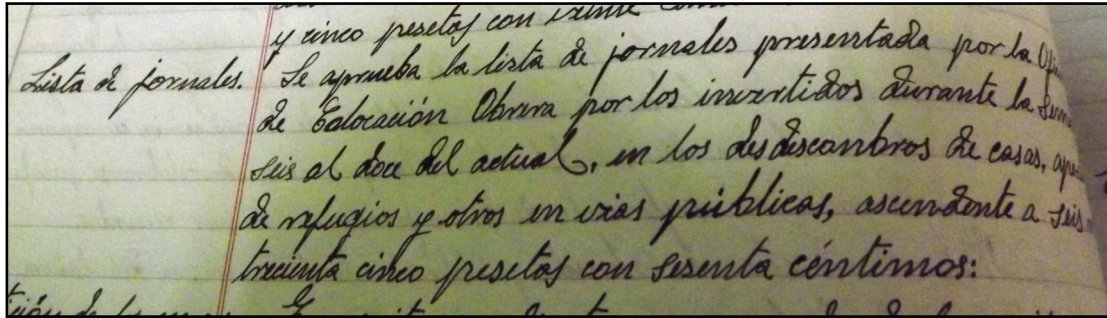 y cinco pesetas con veinte
Lista de jornales.
Se aprueba la lista de jornales presentada por la
de Colocación Obrera por los invertidos durante la
seis al doce del actual, en los desdescombros de casas,
de refugios y otros en vías públicas, ascendente a seis
treinta cinco pesetas con sesenta céntimos: